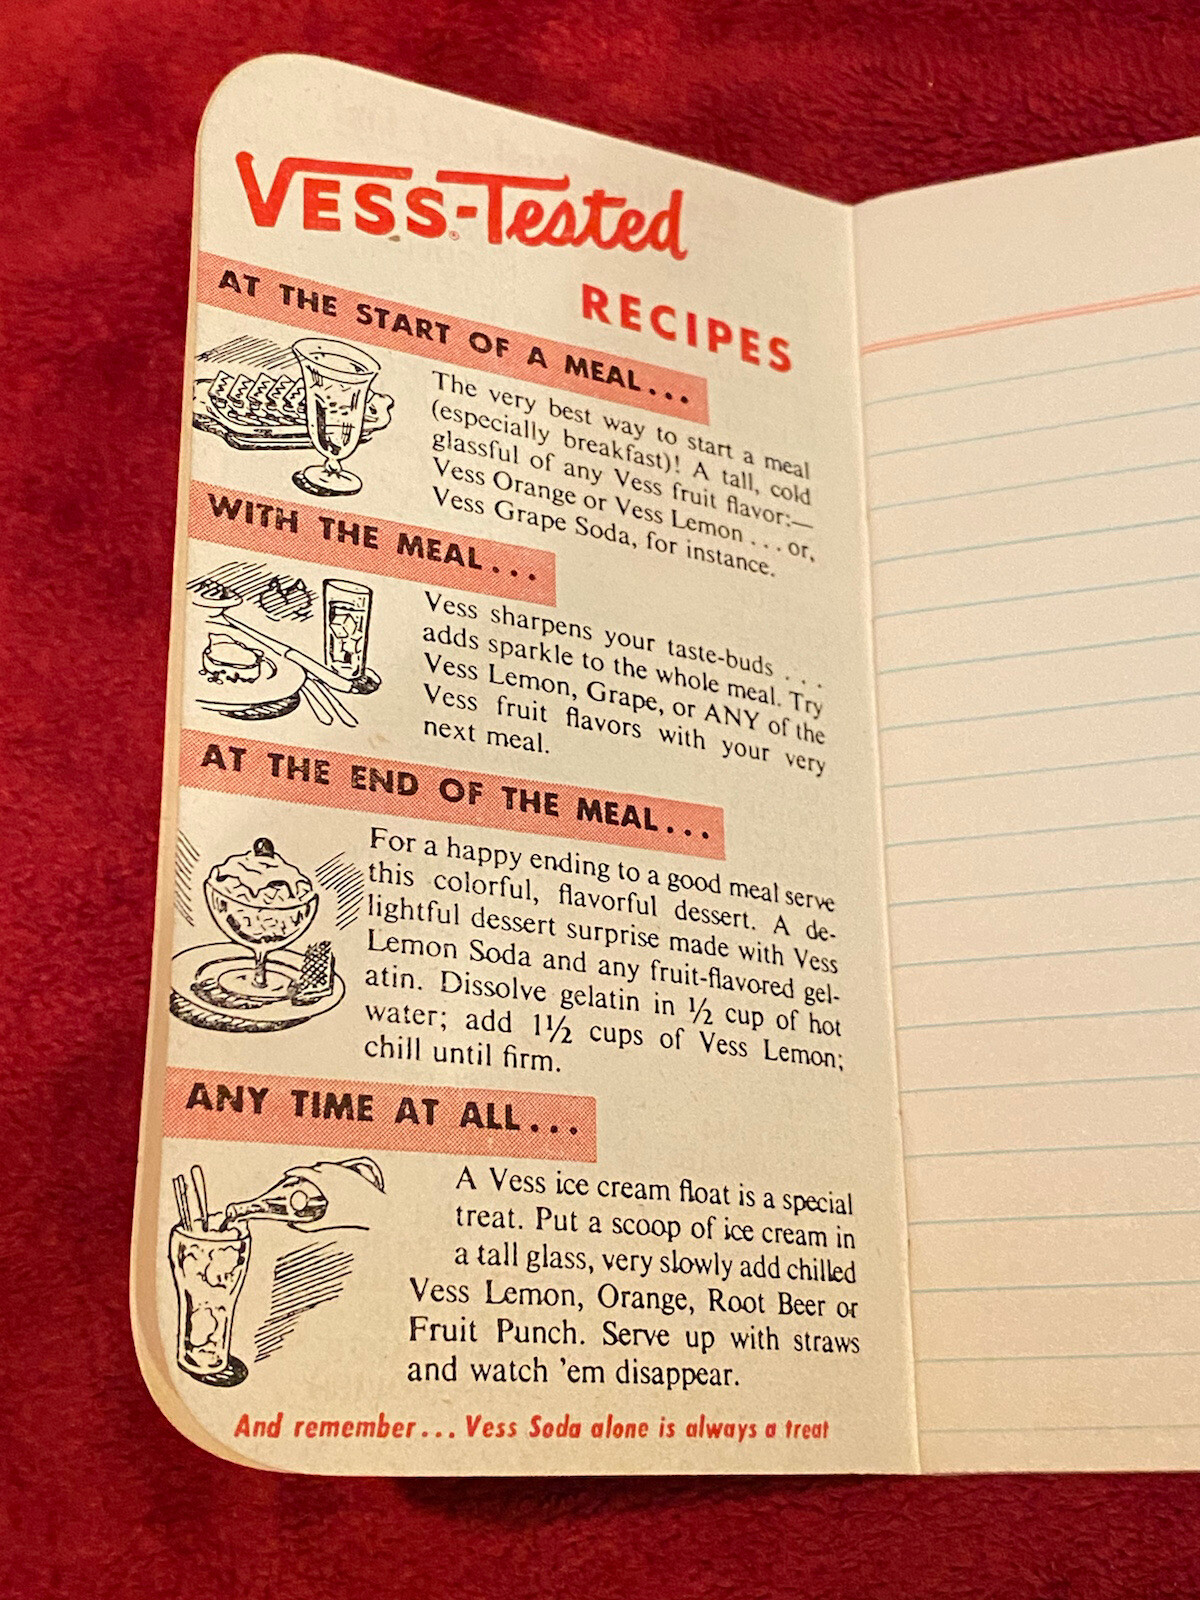 VESS®-Tested
RECIPES
AT THE START OF A MEAL...
The very best way to start a meal
(especially breakfast)! A tall, cold
glassful of any Vess fruit flavor:—
Vess Orange or Vess Lemon ... or,
Vess Grape Soda, for instance.
WITH THE MEAL...
Vess sharpens your taste-buds ...
adds sparkle to the whole meal. Try
Vess Lemon, Grape, or ANY of the
Vess fruit flavors with your very
next meal.
AT THE END OF THE MEAL...
For a happy ending to a good meal serve
this colorful, flavorful dessert. A de-
lightful dessert surprise made with Vess
Lemon Soda and any fruit-flavored gel-
atin. Dissolve gelatin in ½ cup of hot
water; add 1½ cups of Vess Lemon;
chill until firm.
ANY TIME AT ALL...
A Vess ice cream float is a special
treat. Put a scoop of ice cream in
a tall glass, very slowly add chilled
Vess Lemon, Orange, Root Beer or
Fruit Punch. Serve up with straws
and watch 'em disappear.
And remember... Vess Soda alone is always a treat